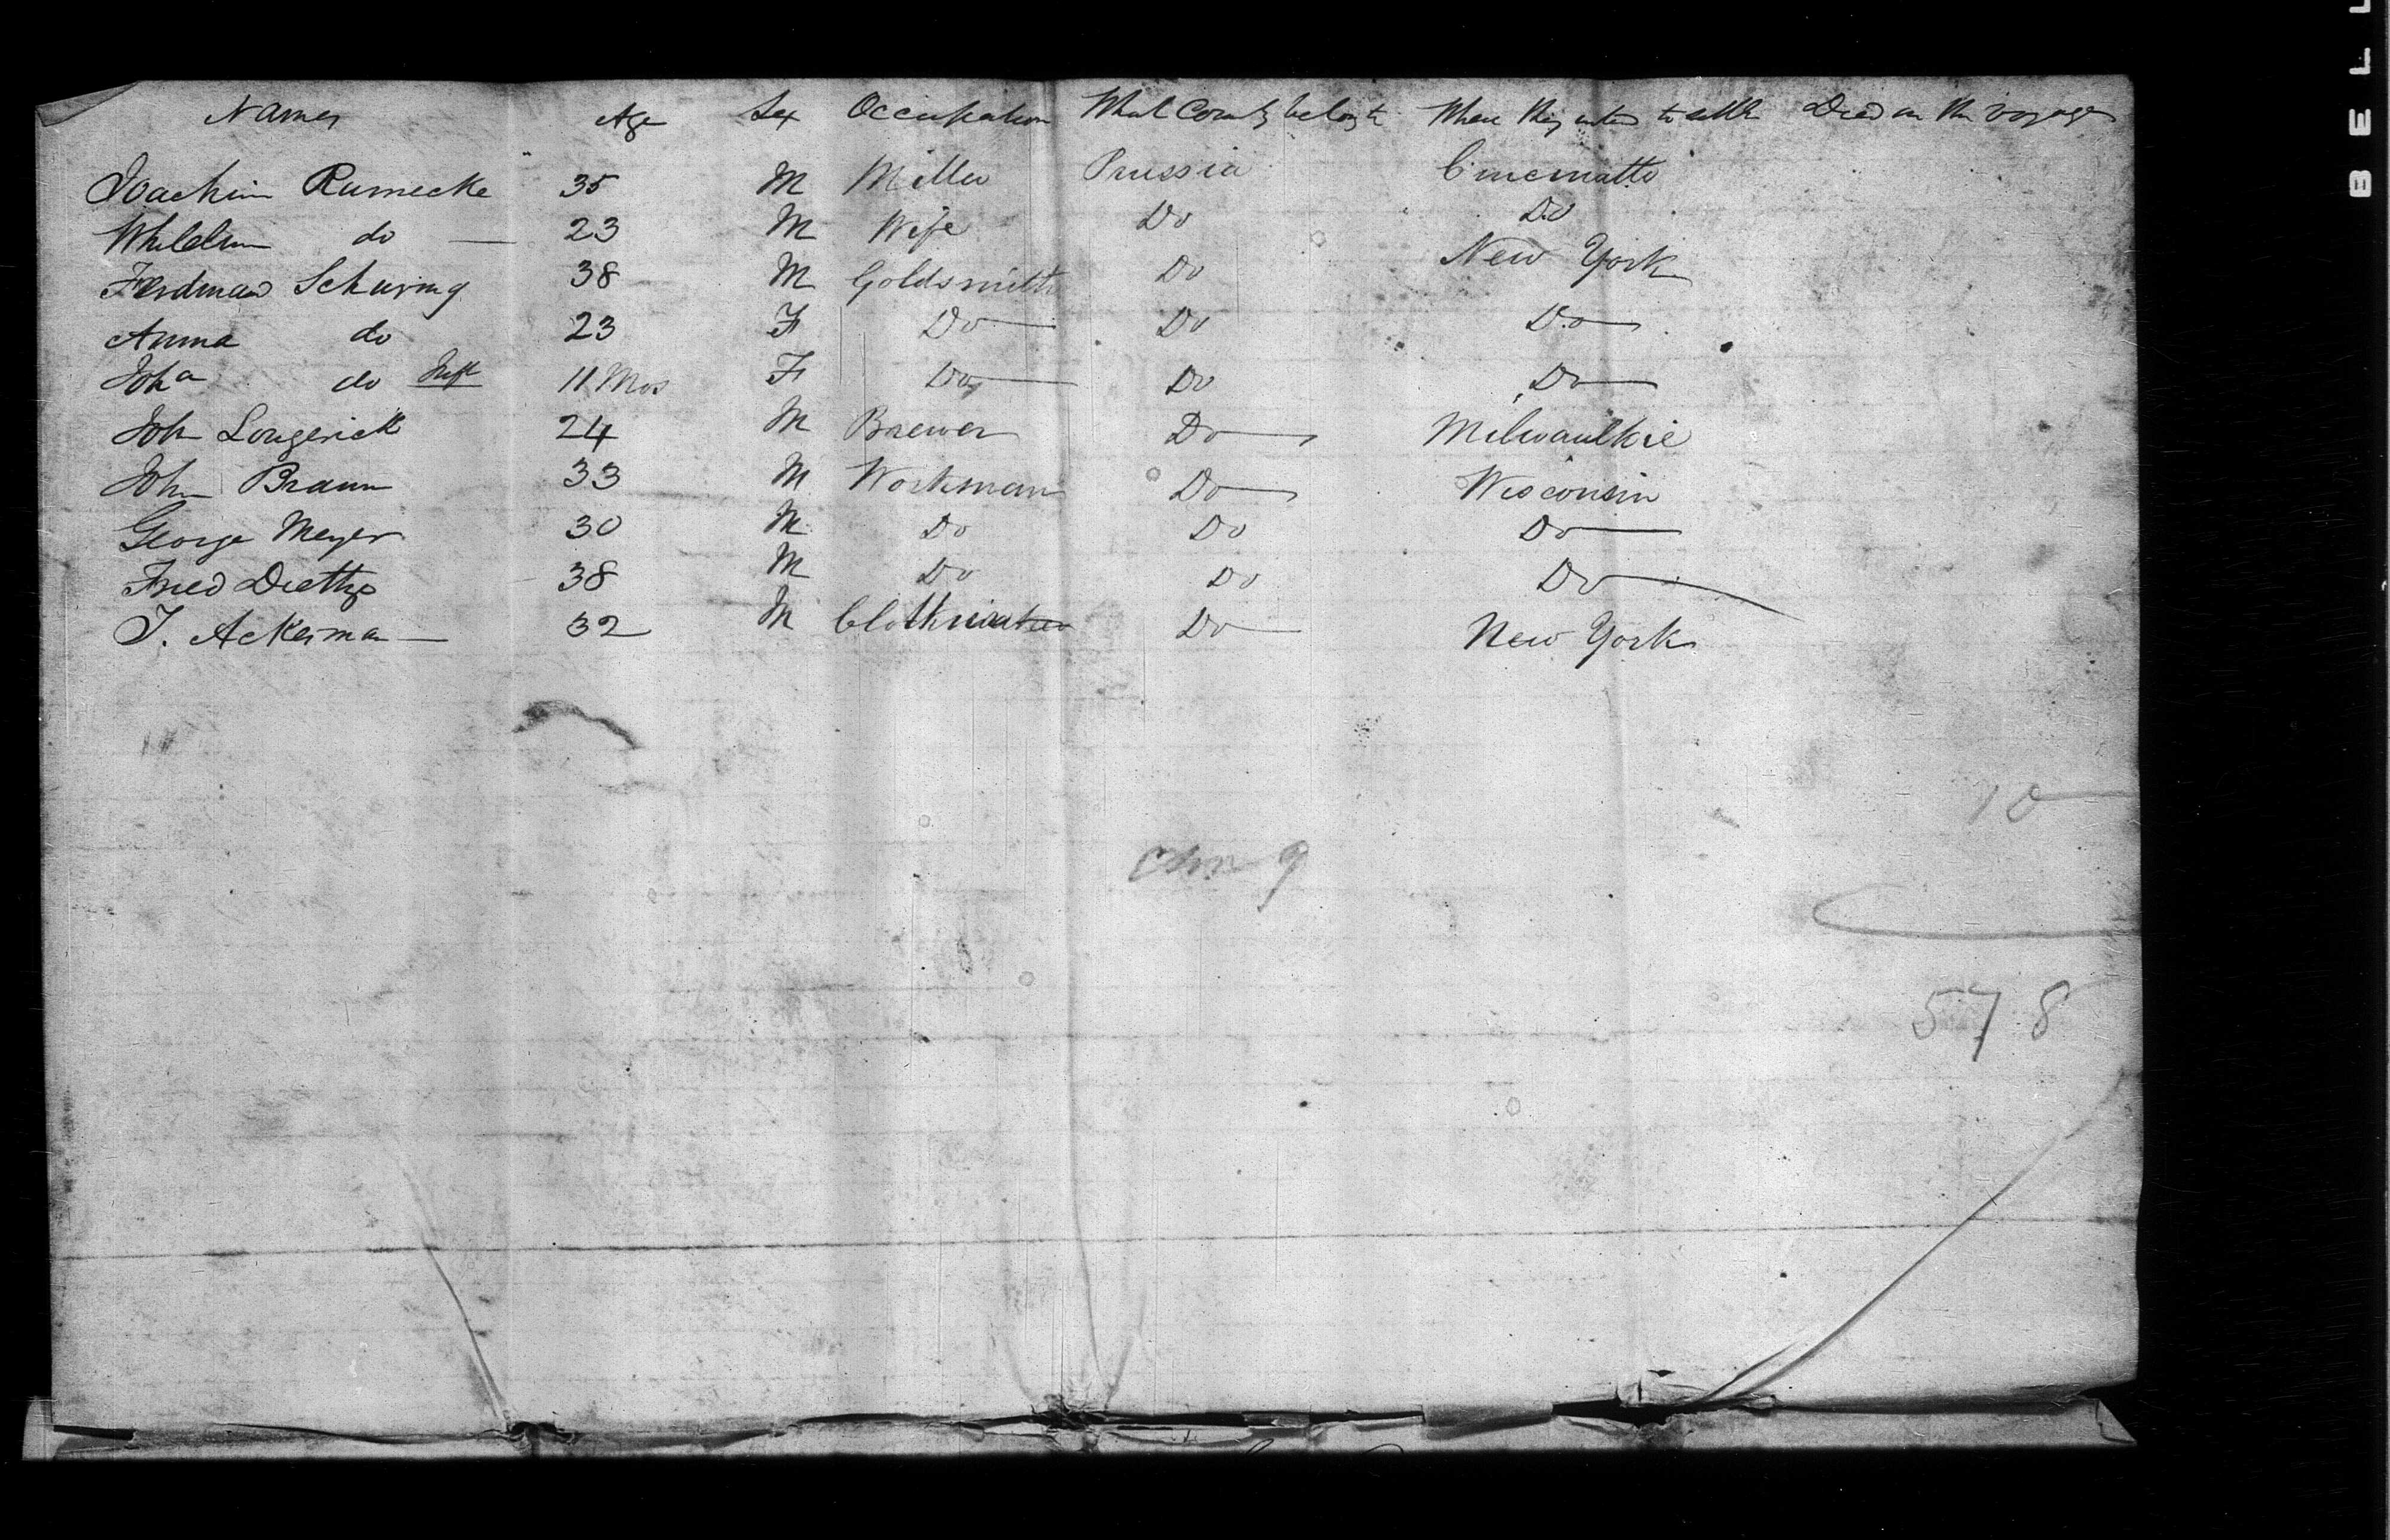 Names Age Sex Occupation What County belong to Where they intend to settle Died on the voyage
Joachim Rumecke 35 M Miller Prussia Cincinatti
Whilelm do — 23 M Wife Do Do
Ferdinand Schuring 38 M Goldsmith Do New York
Anna do 23 F Do Do Do
Joha do Inft 11 Mos F Do Do Do
Joh Longerick 24 M Brewer Do Milwaulkie
John Braun 33 M Workman Do Wisconsin
George Meyer 30 M Do Do Do
Fried 38 M Do Do Do
J. Ackerman — 32 M Do New York
10
578
BELL